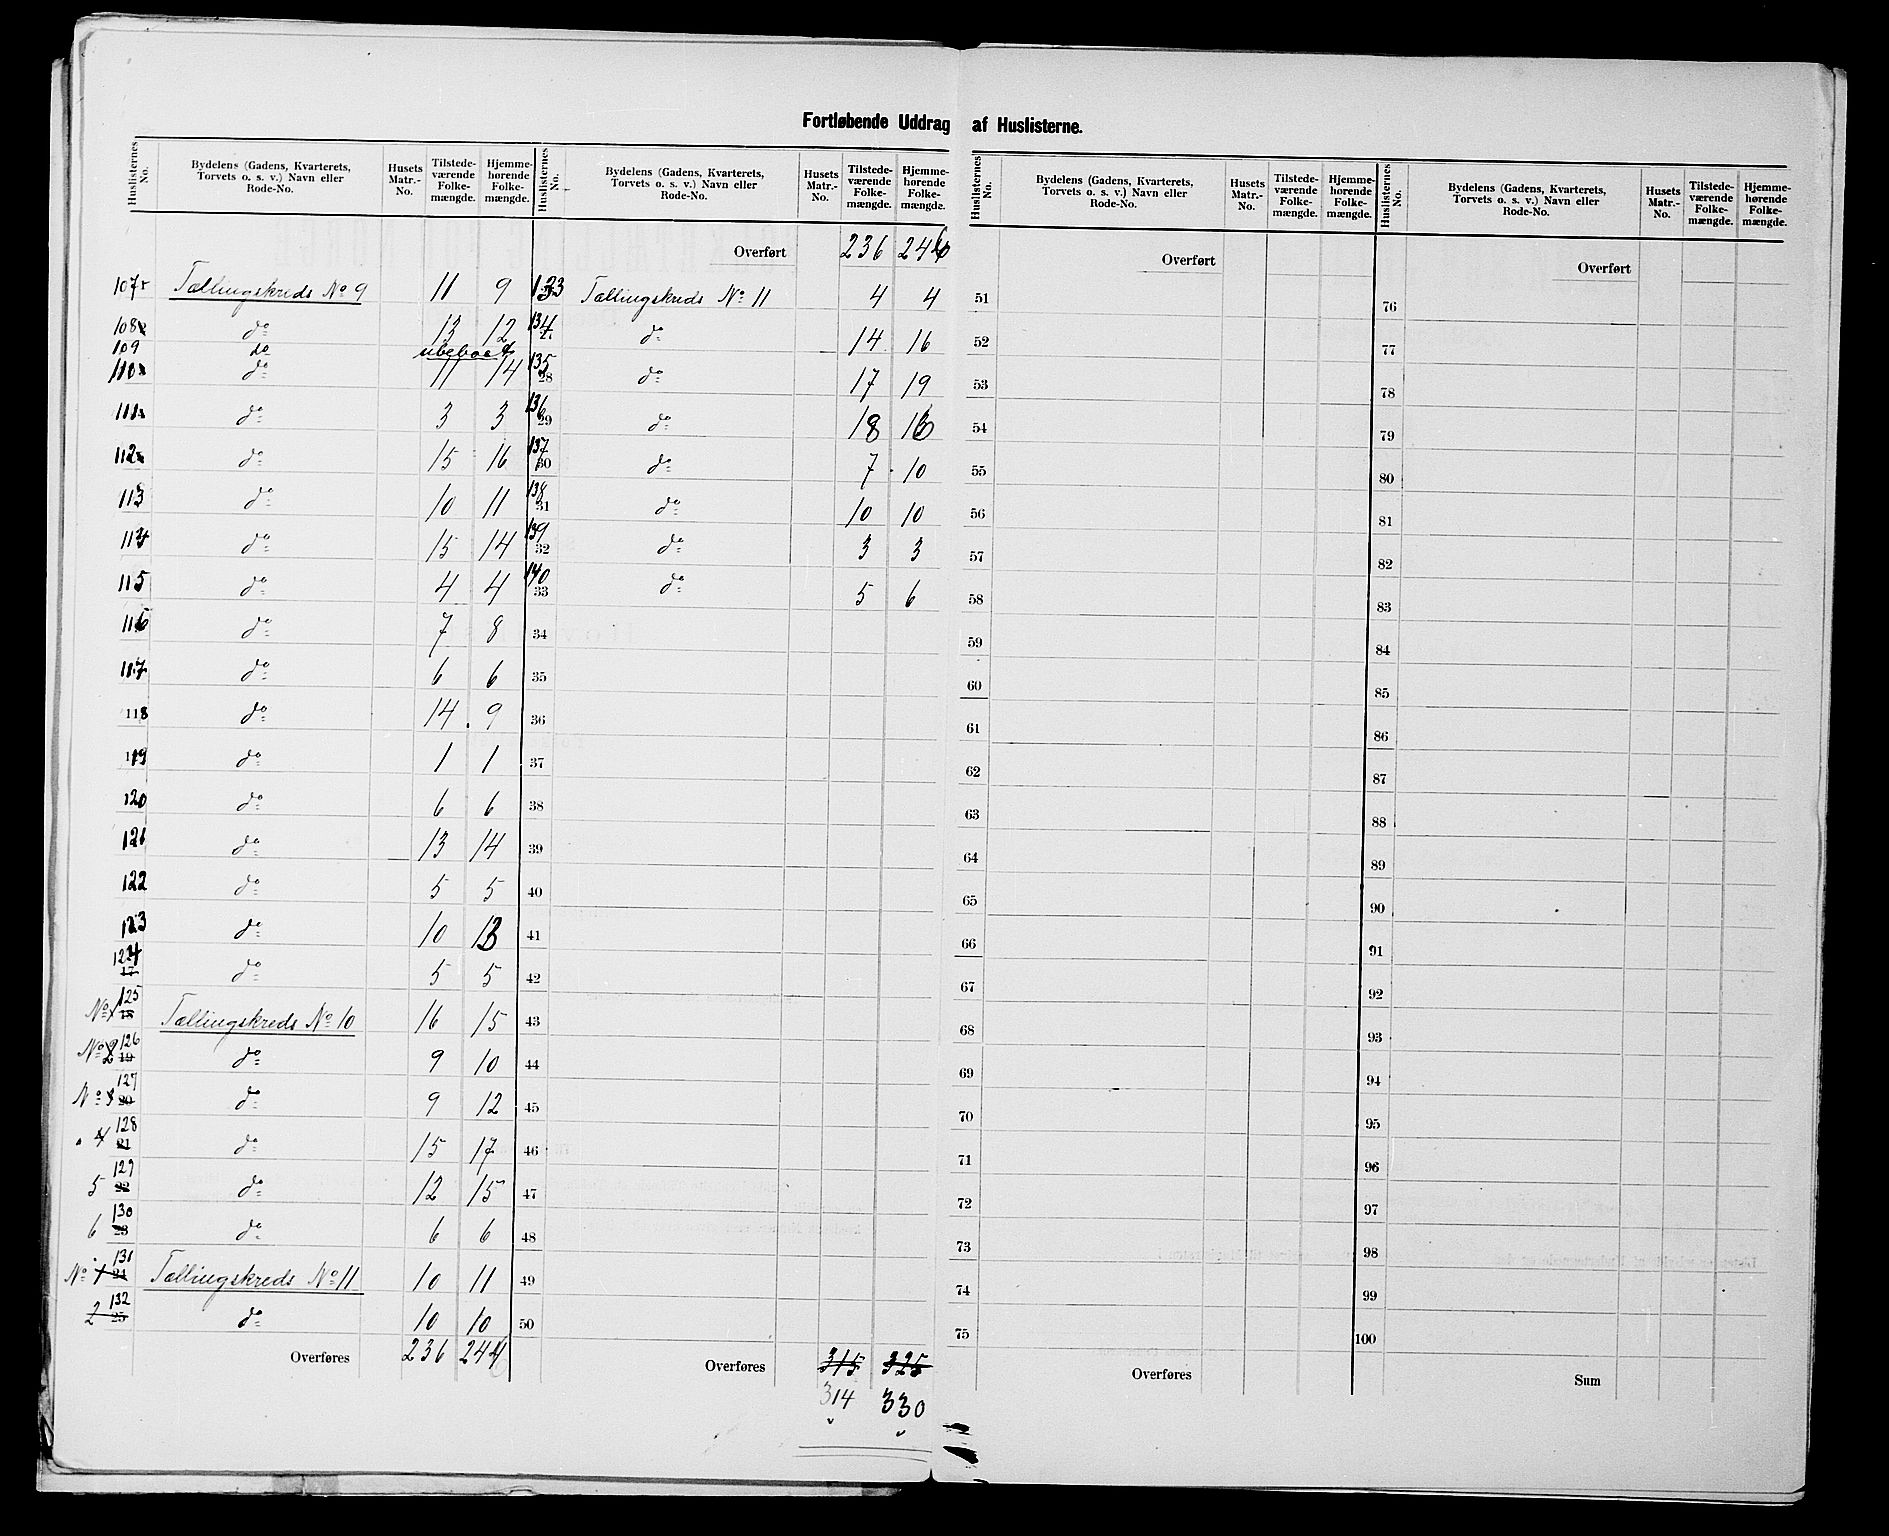 Fortløbende Uddrag af Huslisterne.
Huslisternes No. Bydelens (Gadens, Kvarterets, Torvets o. s. v.) Navn eller Rode-No. Husets Matr.-No. Tilstedeværende Folkemængde. Hjemmehørende Folkemængde.
107 Tællingskreds No 9 11 9
108 do 13 12
109 do ubeboet
110 do 11 14
111 do 3 3
112 do 15 16
113 do 10 11
114 do 15 14
115 do 4 4
116 do 7 8
117 do 6 6
118 do 14 9
119 do 1 1
120 do 6 6
121 do 13 14
122 do 5 5
123 do 10 13
124 17 do 5 5
No 1 125 18 Tællingskreds No 10 16 15
No 2 126 19 do 9 10
No 3 127 20 do 9 12
4 128 21 do 15 17
5 129 22 do 12 15
6 130 23 do 6 6
No 1 131 24 Tællingskreds No 11 10 11
2 132 25 do 10 10
Overføres 236 244
Huslisternes No. Bydelens (Gadens, Kvarterets, Torvets o. s. v.) Navn eller Rode-No. Husets Matr.-No. Tilstedeværende Folkemængde. Hjemmehørende Folkemængde.
Overført 236 246
133 Tællingskreds No 11 4 4
134 do 14 16
135 28 do 17 19
136 29 do 18
137 30 do 7 10
138 31 do 10 10
139 32 do 3 3
140 33 do 5 6
34
35
36
37
38
39
40
41
42
43
44
45
46
47
48
49
50
Overføres 315 325
314 330
Huslisternes No. Bydelens (Gadens, Kvarterets, Torvets o. s. v.) Navn eller Rode-No. Husets Matr.-No. Tilstedeværende Folkemængde. Hjemmehørende Folkemængde.
Overført
51
52
53
54
55
56
57
58
59
60
61
62
63
64
65
66
67
68
69
70
71
72
73
74
75
Overføres
Huslisternes No. Bydelens (Gadens, Kvarterets, Torvets o. s. v.) Navn eller Rode-No. Husets Matr.-No. Tilstedeværende Folkemængde. Hjemmehørende Folkemængde.
Overført
76
77
78
79
80
81
82
83
84
85
86
87
88
89
90
91
92
93
94
95
96
97
98
99
100
Sum